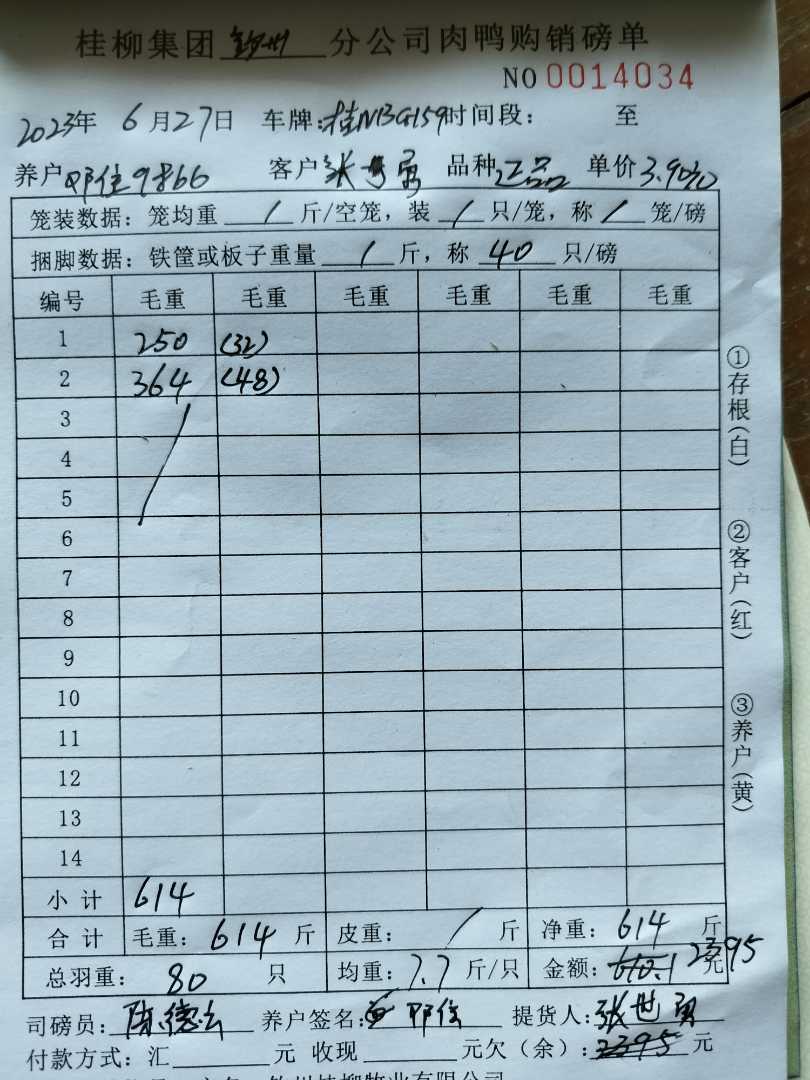 桂柳集团 钦州 分公司肉鸭购销磅单
NO 0014034
2023年 6月27日 车牌:桂NBG159 时间段: 至
养户 邓佳9866 客户 张世勇 品种 正品 单价 3.90元
笼装数据:笼均重 / 斤/空笼,装 / 只/笼,称 / 笼/磅
捆脚数据:铁筐或板子重量 / 斤,称 40 只/磅
编号 毛重 毛重 毛重 毛重 毛重 毛重
1 250 (32)
2 364 (48)
3
4
5
6
7
8
9
10
11
12
13
14
小计 614
合计 毛重: 614 斤 皮重: / 斤 净重: 614 斤
总羽重: 80 只 均重: 7.7 斤/只 金额: 2395 元
司磅员: 陈德 养户签名: 邓佳 提货人: 张世勇
付款方式:汇 元 收现 元欠(余): 2395 元
①存根(白)
②客户(红)
③养户(黄)